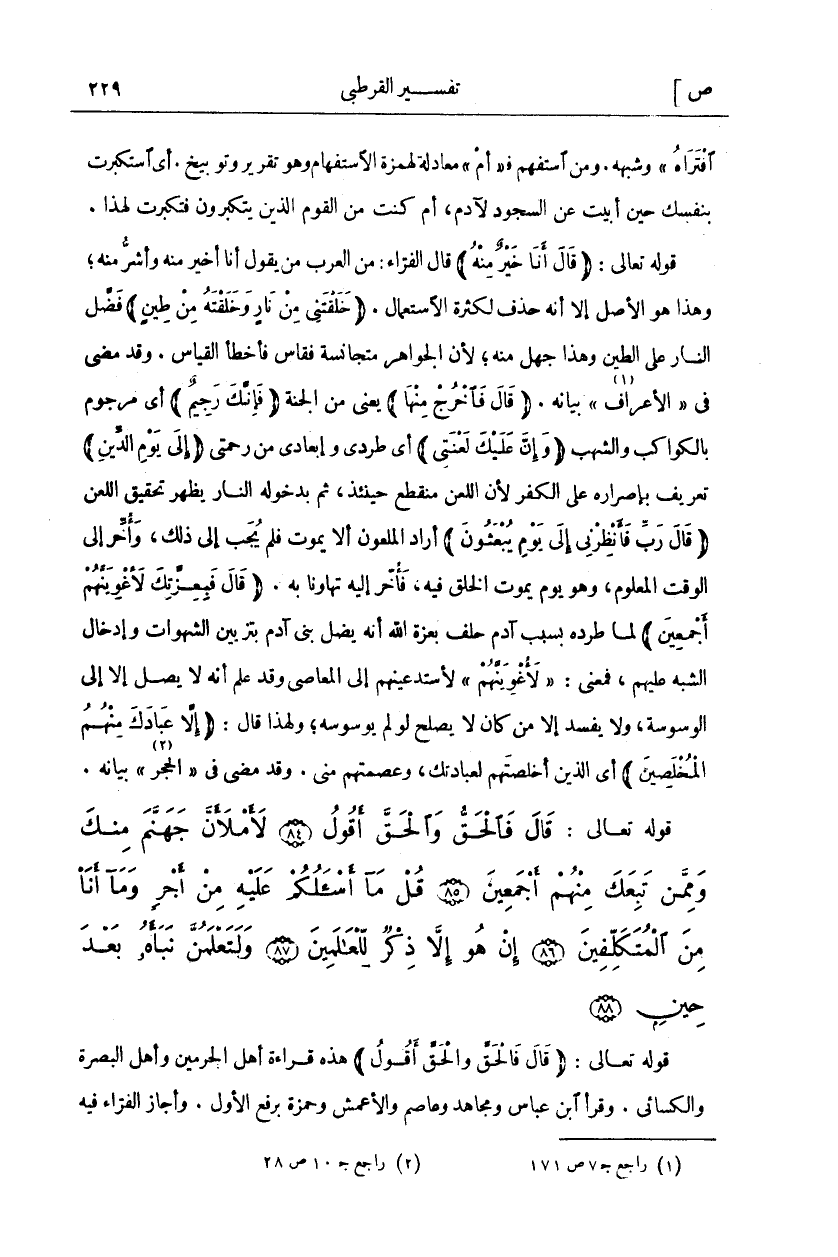 ص ] تفســـير القرطبى ٢٢٩
ٱفْتَرَاهُ » وشبهه . ومن ٱستفهم فـ « أمْ » معادلة لهمزة الٱستفهام وهو تقرير وتوبيخ . أى ٱستكبرت
بنفسك حين أبيت عن السجود لآدم ، أم كنت من القوم الذين يتكبرون فتكبرت لهذا .
قوله تعالى : ﴿ قَالَ أَنَا خَيْرٌ مِنْهُ ﴾ قال الفرّاء : من العرب من يقول أنا أخير منه وأشرُّ منه ؛
وهذا هو الأصل إلا أنه حذف لكثرة الٱستعمال . ﴿ خَلَقْتَنِى مِنْ نَارٍ وَخَلَقْتَهُ مِنْ طِينٍ ﴾ فَضَّل
النار على الطين وهذا جهل منه ؛ لأن الجواهر متجانسة فقاس فأخطأ القياس . وقد مضى
فى « الأعراف » (١) بيانه . ﴿ قَالَ فَٱخْرُجْ مِنْهَا ﴾ يعنى من الجنة ﴿ فَإِنَّكَ رَجِيمٌ ﴾ أى مرجوم
بالكواكب والشهب ﴿ وَإِنَّ عَلَيْكَ لَعْنَتِى ﴾ أى طردى وإبعادى من رحمتى ﴿ إِلَى يَوْمِ الدِّينِ ﴾
تعريف بإصراره على الكفر لأن اللعن منقطع حينئذ ، ثم بدخوله النار يظهر تحقيق اللعن
﴿ قَالَ رَبِّ فَأَنْظِرْنِى إِلَى يَوْمِ يُبْعَثُونَ ﴾ أراد الملعون ألا يموت فلم يُجَب إلى ذلك ، وأُخِّر إلى
الوقت المعلوم ، وهو يوم يموت الخلق فيه ، فأُخِّر إليه تهاونا به . ﴿ قَالَ فَبِعِزَّتِكَ لَأُغْوِيَنَّهُمْ
أَجْمَعِينَ ﴾ لما طرده بسبب آدم حلف بعزة الله أنه يضل بنى آدم بتزيين الشهوات وإدخال
الشبه عليهم ، فمعنى : « لَأُغْوِيَنَّهُمْ » لأستدعينهم إلى المعاصى وقد علم أنه لا يصل إلا إلى
الوسوسة ، ولا يفسد إلا من كان لا يصلح لو لم يوسوسه ؛ ولهذا قال : ﴿ إِلَّا عِبَادَكَ مِنْهُمُ
المُخْلَصِينَ ﴾ أى الذين أخلصتَهم لعبادتك ، وعصمتهم منى . وقد مضى فى « الحجر » (٢) بيانه .
قوله تعـالى : قَالَ فَٱلْحَقُّ وَٱلْحَقَّ أَقُولُ ٨٤ لَأَمْلَأَنَّ جَهَنَّمَ مِنكَ
وَمِمَّن تَبِعَكَ مِنْهُمْ أَجْمَعِينَ ٨٥ قُلْ مَآ أَسْـَٔلُكُمْ عَلَيْهِ مِنْ أَجْرٍ وَمَآ أَنَا۠
مِنَ ٱلْمُتَكَلِّفِينَ ٨٦ إِنْ هُوَ إِلَّا ذِكْرٌ لِّلْعَـٰلَمِينَ ٨٧ وَلَتَعْلَمُنَّ نَبَأَهُۥ بَعْدَ
حِينٍۭ ٨٨
قوله تعـالى : ﴿ قَالَ فَالْحَقَّ والْحَقَّ أَقُولُ ﴾ هذه قراءة أهل الحرمين وأهل البصرة
والكسائى . وقرأ ٱبن عباس ومجاهد وعاصم والأعمش وحمزة برفع الأول . وأجاز الفرّاء فيه
(١) راجع جـ ٧ ص ١٧١ (٢) راجع جـ ١٠ ص ٢٨